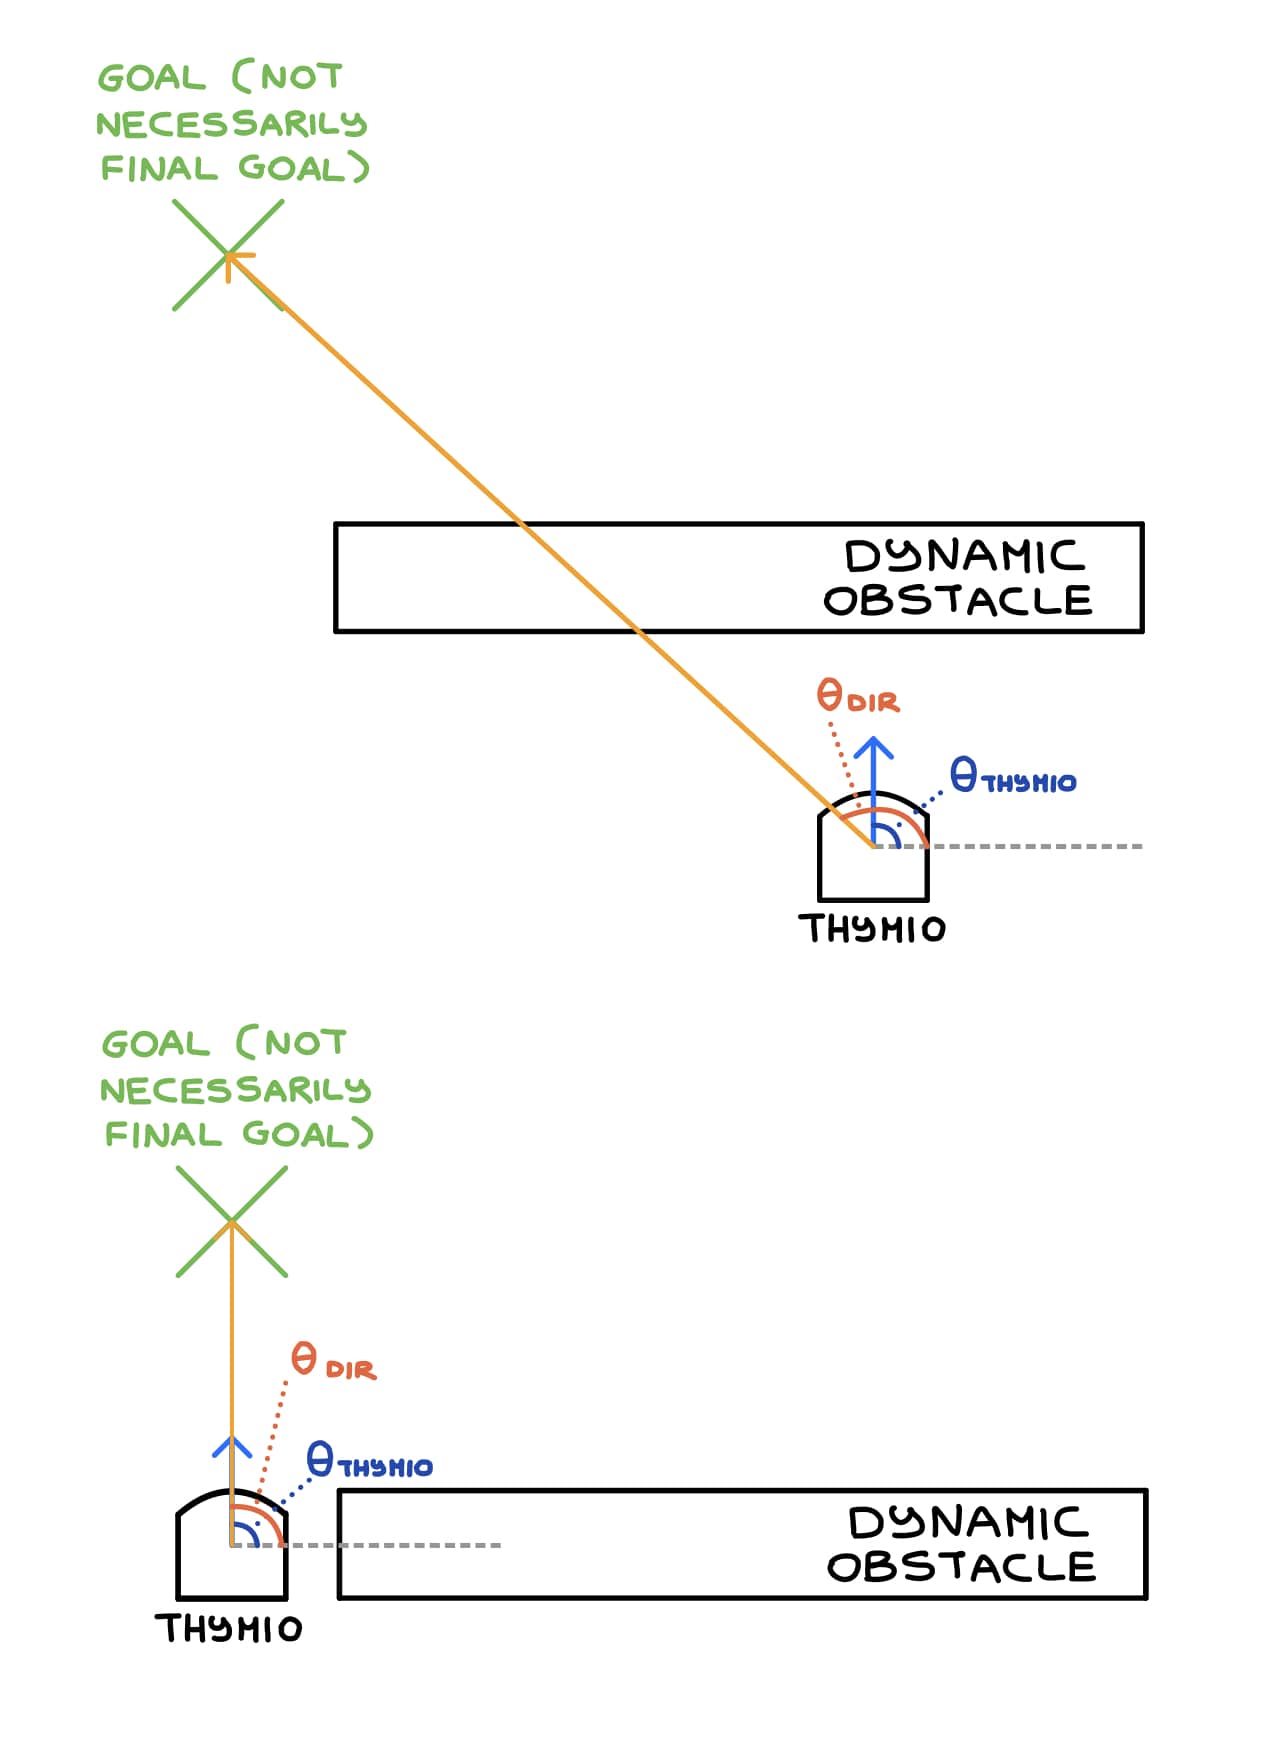 GOAL (NOT
NECESSARILY
FINAL GOAL)
DYNAMIC
OBSTACLE
θDIR
θTHYMIO
THYMIO
GOAL (NOT
NECESSARILY
FINAL GOAL)
θDIR
θTHYMIO
DYNAMIC
OBSTACLE
THYMIO